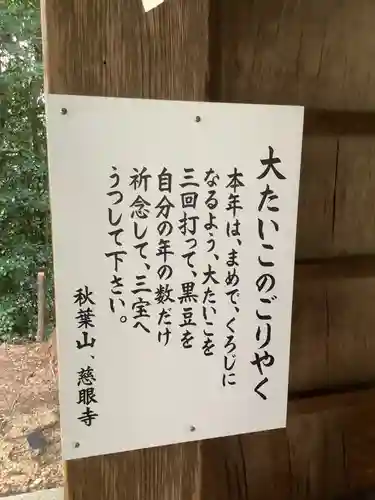 大たいこのごりやく
本年は、まめで、くろじに
なるよう、大たいこを
三回打って、黒豆を
自分の年の数だけ
祈念して、三宝へ
うつして下さい。
秋葉山、慈眼寺